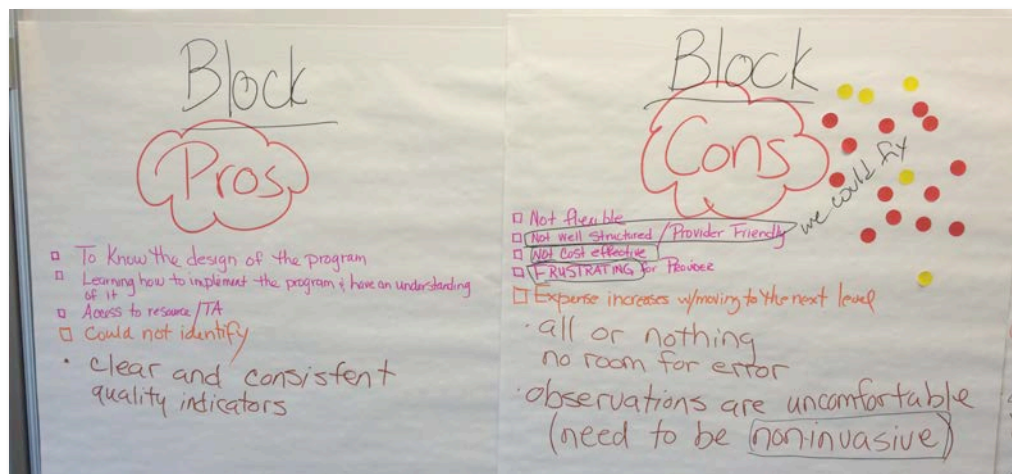 Block
Pros
To Know the design of the program
Learning how to implement the program & have an understanding
of it
Access to resource/TA
Could not identify
• clear and consistent
quality indicators
Block
Cons
we could fix
Not flexible
Not well structured / Provider Friendly
Not Cost effective
FRUSTRATING for Provider
Expense increases w/moving to the next level
• all or nothing
no room for error
• observations are uncomfortable
(need to be non-invasive)